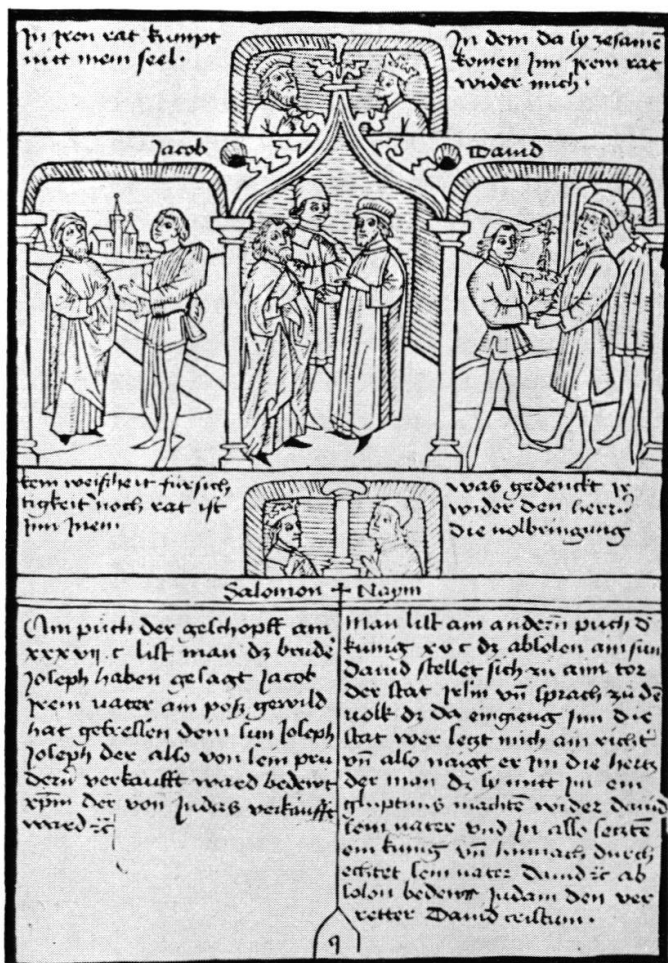 In iren rat kumpt
nitt mein seel.
In dem da sy zesamē
komen inn irem rat
wider mich.
Jacob
David
kein weisheit fürsich
tigkeit noch rat ist
inn inen
was gedenckt ir
wider den herrn
die volbringung
Salomon Naym
Am puch der geschopff am
xxxvij. c list man dz brüder
Joseph haben gesagt Jacob
irem vater ain pösz gewild
hat gefressen dein sun Joseph
Joseph der also von sein prü
dern verkaufft ward bedewt
xpm der von Judas verkaufft
ward
Man list am andern puch d
kunig xv c dz absolon ain sun
david stellet sich zu aim tor
der stat jrlm vn̄ sprach zu dē
volk dz da eingieng inn die
stat wer setzt mich ain richt
vn̄ also naigt er im die hertz
der man dz sy mitt im ein
machtē wider david
sein vater vnd in also setztē
ein kunig vn̄ hinnach durch
echtet sein vater david ab
solon bedewtt Judam den ver
retter David cristum.
q